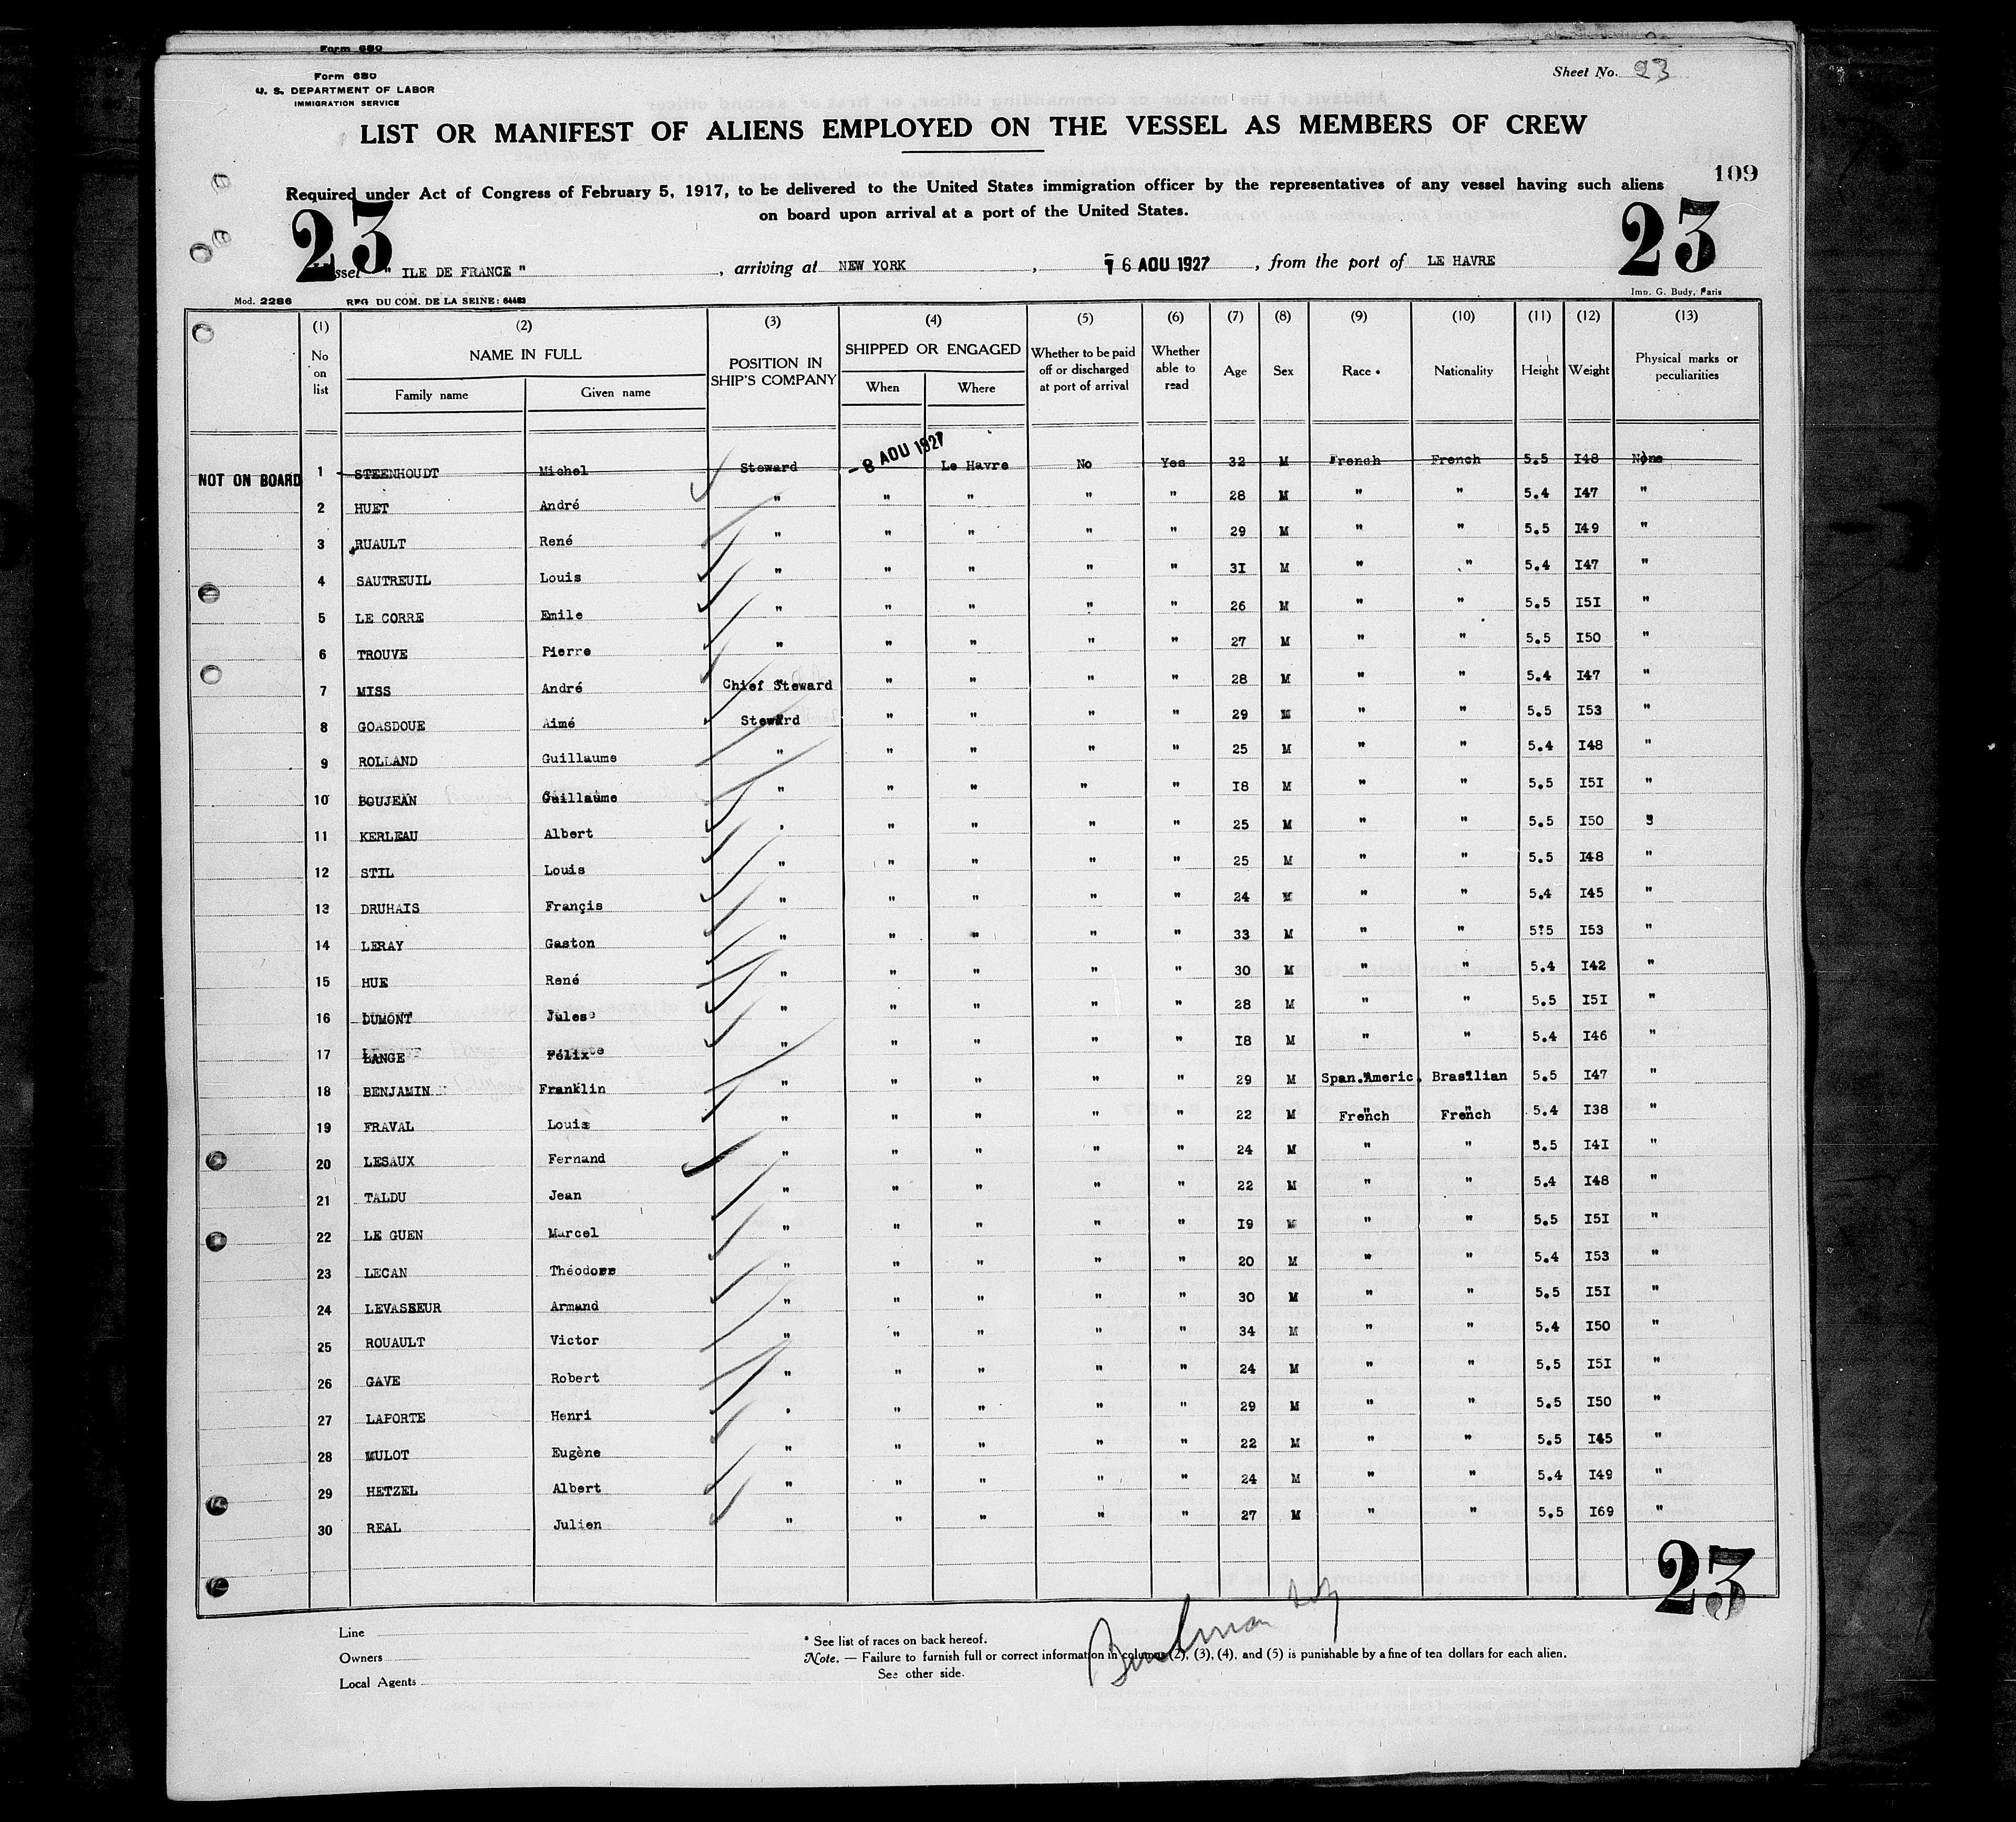 Form 680
Form 680
U. S. DEPARTMENT OF LABOR
IMMIGRATION SERVICE
Sheet No. 23
LIST OR MANIFEST OF ALIENS EMPLOYED ON THE VESSEL AS MEMBERS OF CREW
109
Required under Act of Congress of February 5, 1917, to be delivered to the United States immigration officer by the representatives of any vessel having such aliens
on board upon arrival at a port of the United States.
23 23
Vessel " ILE DE FRANCE " , arriving at NEW YORK , 16 AOU 1927 , from the port of LE HAVRE
Mod. 2286 REG. DU COM. DE LA SEINE: 64483 Imp. G. Budy, Paris
(1) (2) (3) (4) (5) (6) (7) (8) (9) (10) (11) (12) (13)
No on list NAME IN FULL Family name Given name POSITION IN SHIP'S COMPANY SHIPPED OR ENGAGED When Where Whether to be paid off or discharged at port of arrival Whether able to read Age Sex Race * Nationality Height Weight Physical marks or peculiarities
NOT ON BOARD 1 STEENHOUDT Michel Steward - 8 AOU 1927 Le Havre No Yes 32 M French French 5.5 I48 None
2 HUET André " " " " " 28 M " " 5.4 I47 "
3 RUAULT René " " " " " 29 M " " 5.5 I49 "
4 SAUTREUIL Louis " " " " " 3I M " " 5.4 I47 "
5 LE CORRE Emile " " " " " 26 M " " 5.5 I5I "
6 TROUVE Pierre " " " " " 27 M " " 5.5 I50 "
7 MISS André Chief Steward " " " " 28 M " " 5.4 I47 "
8 GOASDOUE Aimé Steward " " " " 29 M " " 5.5 I53 "
9 ROLLAND Guillaume " " " " " 25 M " " 5.4 I48 "
10 BOUJEAN Guillaume " " " " " I8 M " " 5.5 I5I "
11 KERLEAU Albert " " " " " 25 M " " 5.5 I50 "
12 STIL Louis " " " " " 25 M " " 5.5 I48 "
13 DRUHAIS Françis " " " " " 24 M " " 5.4 I45 "
14 LERAY Gaston " " " " " 33 M " " 5?5 I53 "
15 HUE René " " " " " 30 M " " 5.4 I42 "
16 DUMONT Jules " " " " " 28 M " " 5.5 I5I "
17 LANGE Félix " " " " " I8 M " " 5.4 I46 "
18 BENJAMIN Franklin " " " " " 29 M Span.Americ. Brasilian 5.5 I47 "
19 FRAVAL Louis " " " " " 22 M French French 5.4 I38 "
20 LESAUX Fernand " " " " " 24 M " " 5.5 I4I "
21 TALDU Jean " " " " " 22 M " " 5.4 I48 "
22 LE GUEN Marcel " " " " " I9 M " " 5.5 I5I "
23 LECAN Théodore " " " " " 20 M " " 5.4 I53 "
24 LEVASSEUR Armand " " " " " 30 M " " 5.5 I5I "
25 ROUAULT Victor " " " " " 34 M " " 5.4 I50 "
26 GAVE Robert " " " " " 24 M " " 5.5 I5I "
27 LAPORTE Henri " " " " " 29 M " " 5.5 I50 "
28 MULOT Eugène " " " " " 22 M " " 5.5 I45 "
29 HETZEL Albert " " " " " 24 M " " 5.4 I49 "
30 REAL Julien " " " " " 27 M " " 5.5 I69 "
23
Line
Owners
Local Agents
* See list of races on back hereof.
Note. — Failure to furnish full or correct information in columns (2), (3), (4), and (5) is punishable by a fine of ten dollars for each alien.
See other side.